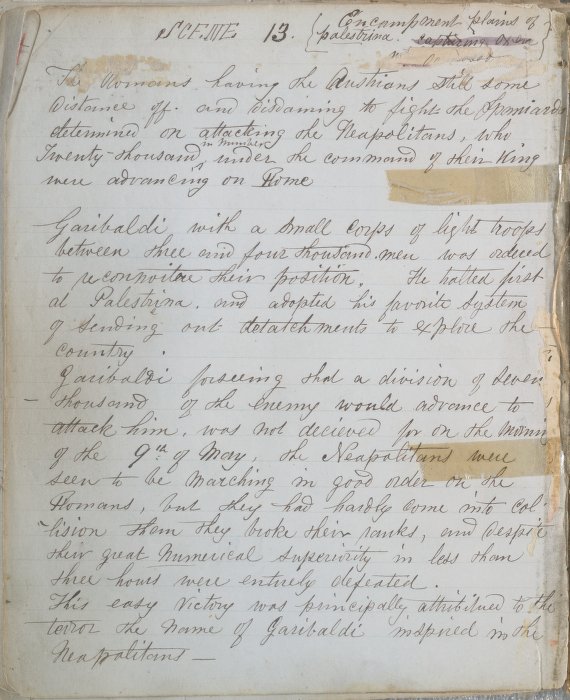 SCENE 13. { Encampment plains of }
palestrina.
The Romans having the Austrians still some
distance off. and disdaining to fight the Spaniards
determined on attacking the Neapolitans, who
in Number
Twenty-thousand, under the command of their King
were advancing on Rome
Garibaldi with a small corps of light troops
between three and four thousand men was ordered
to reconnoitre their position. He halted first
at Palestrina. and adopted his favorite system
of sending out detatchments to explore the
country.
Garibaldi forseeing that a division of seven
thousand of the enemy would advance to
attack him, was not decieved for on the morning
of the 9th of May, the Neapolitans were
seen to be marching in good order on the
Romans, but they had hardly come into col-
lision them they broke their ranks, and despite
their great numerical superiority in less than
three hours were entirely defeated.
This easy victory was principally attributed to the
terror the name of Garibaldi inspired in the
Neapolitans —